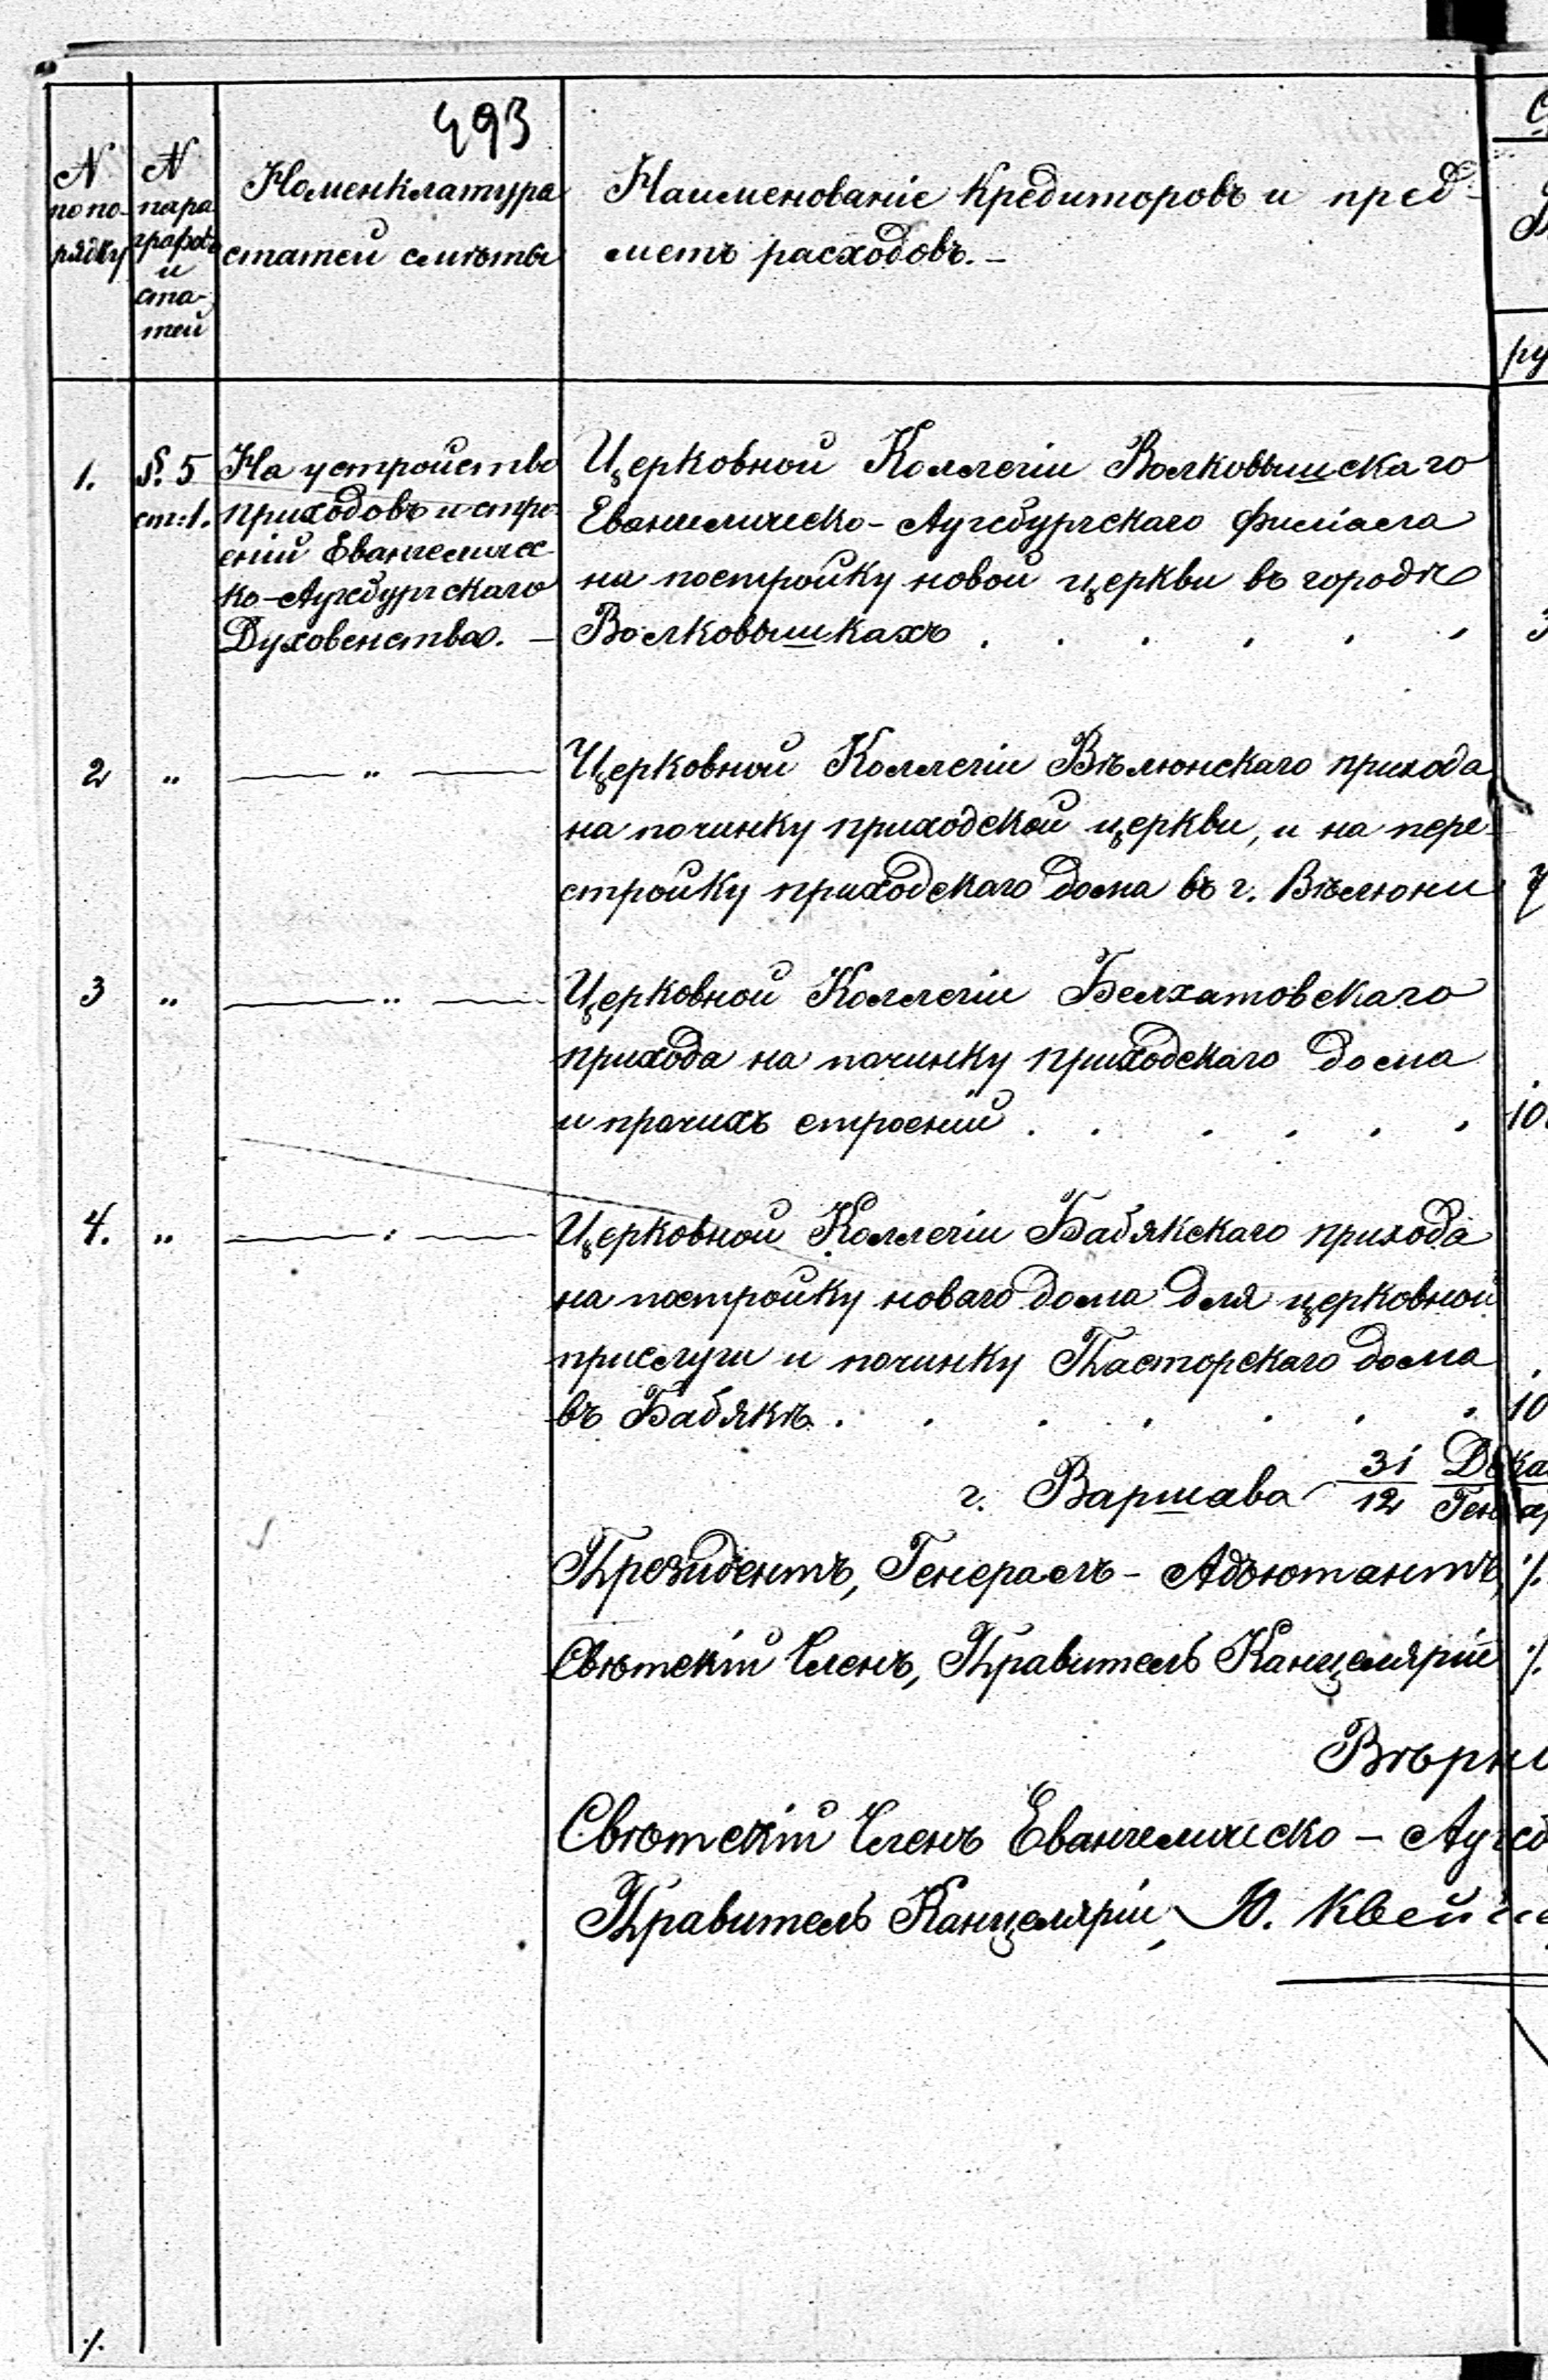 493
N
по по-
рядку
N
пара
графовъ
и
ста-
тей
Номенклатура
статей смѣты
Наименованіе Кредиторовъ и пред-
метъ расходовъ.-
ру
1.
§. 5
ст:1.
На устройство
приходовъ и стро
еній Евангеличес
ко-Аугсбургскаго
Духовенства. -
Церковной Коллегіи Волковышскаго
Евангелическо-Аугсбургскаго Филіала
на постройку новой церкви въ городѣ
Волковышкахъ . . . . . .
2 " — " —
Церковной Коллегіи Вѣлюнскаго прихода
на починку приходской церкви, и на пере-
стройку приходскаго дома въ г. Вѣлюни
3 " — " —
Церковной Коллегіи Белхатовскаго
прихода на починку приходскаго дома
и прочихъ строеній . . . . . . 10.
4. " — : —
Церковной Коллегіи Бабякскаго прихода
на постройку новаго дома для церковной
прислуги и починку Пасторскаго дома
въ Бабякѣ . . . . . . . 10
г. Варшава 31 Дека
12 Генвар
Президентъ, Генералъ-Адъютантъ, ./.
Свѣтскій Членъ, Правитель Канцеляріи ./.
Вѣрно
Свѣтскій Членъ Евангелическо-Аугсб
Правитель Канцеляріи, Ю.
./.